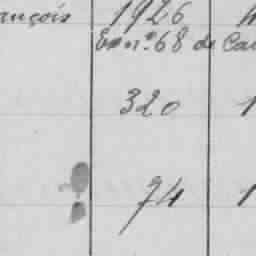 ançois 1926
Ex. n° 68 de Ca
320 1
74 1